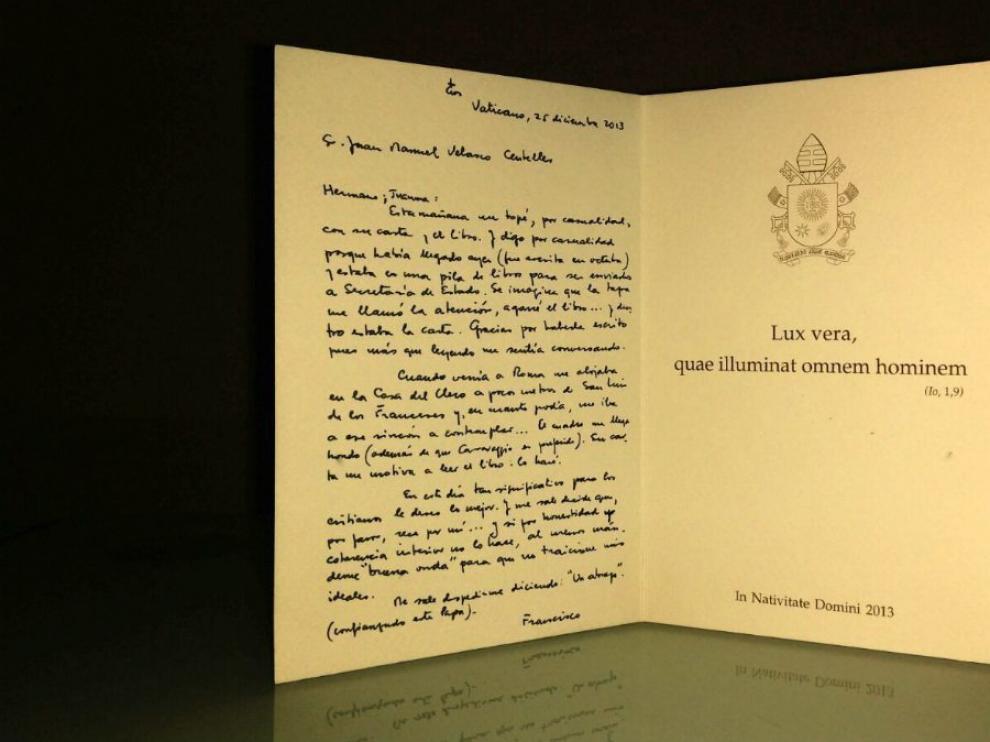 Vaticano, 25 diciembre 2013
Sr. Juan Manuel Velasco Centelles
Hermano, Juanma:
Esta mañana me topé, por casualidad,
con su carta y el libro. Y digo por casualidad
porque había llegado ayer (fue escrita en octubre)
y estaba en una pila de libros para ser enviados
a Secretaría de Estado. Se imagine que la tapa
me llamó la atención, agarré el libro... y den
tro estaba la carta. Gracias por haberle escrito
pues más que leyendo me sentía conversando.
Cuando venía a Roma me alojaba
en la Casa del Clero a pocos metros de San Luis
de los Franceses y, en cuanto podía, me iba
a ese rincón a contemplar... El cuadro me llega
hondo (además de que Caravaggio es preferido). Su car
ta me motiva a leer el libro: lo haré.
En este día tan significativo para los
cristianos le deseo lo mejor. Y me sale decirle que,
por favor, rece por mí... y si por honestidad y
coherencia interior no lo hace, al menos mán-
deme "buena onda" para que no traicione mis
ideales.
Me sale despedirme diciendo: "Un abrazo".
(confianzudo este Papa).
Francisco
Lux vera,
quae illuminat omnem hominem
(Io, 1,9)
In Nativitate Domini 2013